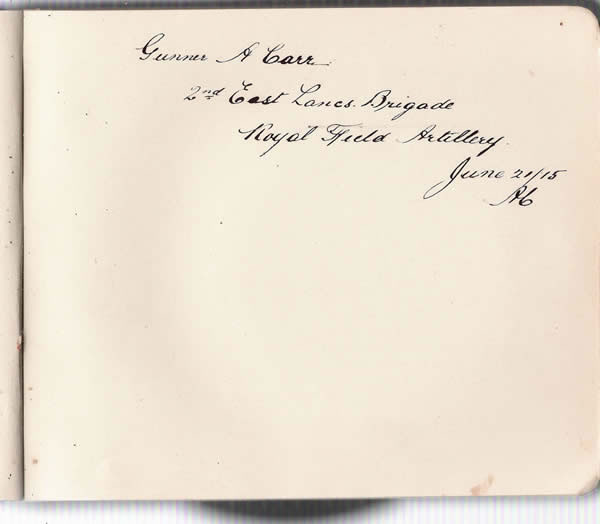 Gunner A Carr.
2nd East Lancs. Brigade
Royal Field Artillery.
June 21/15
AC